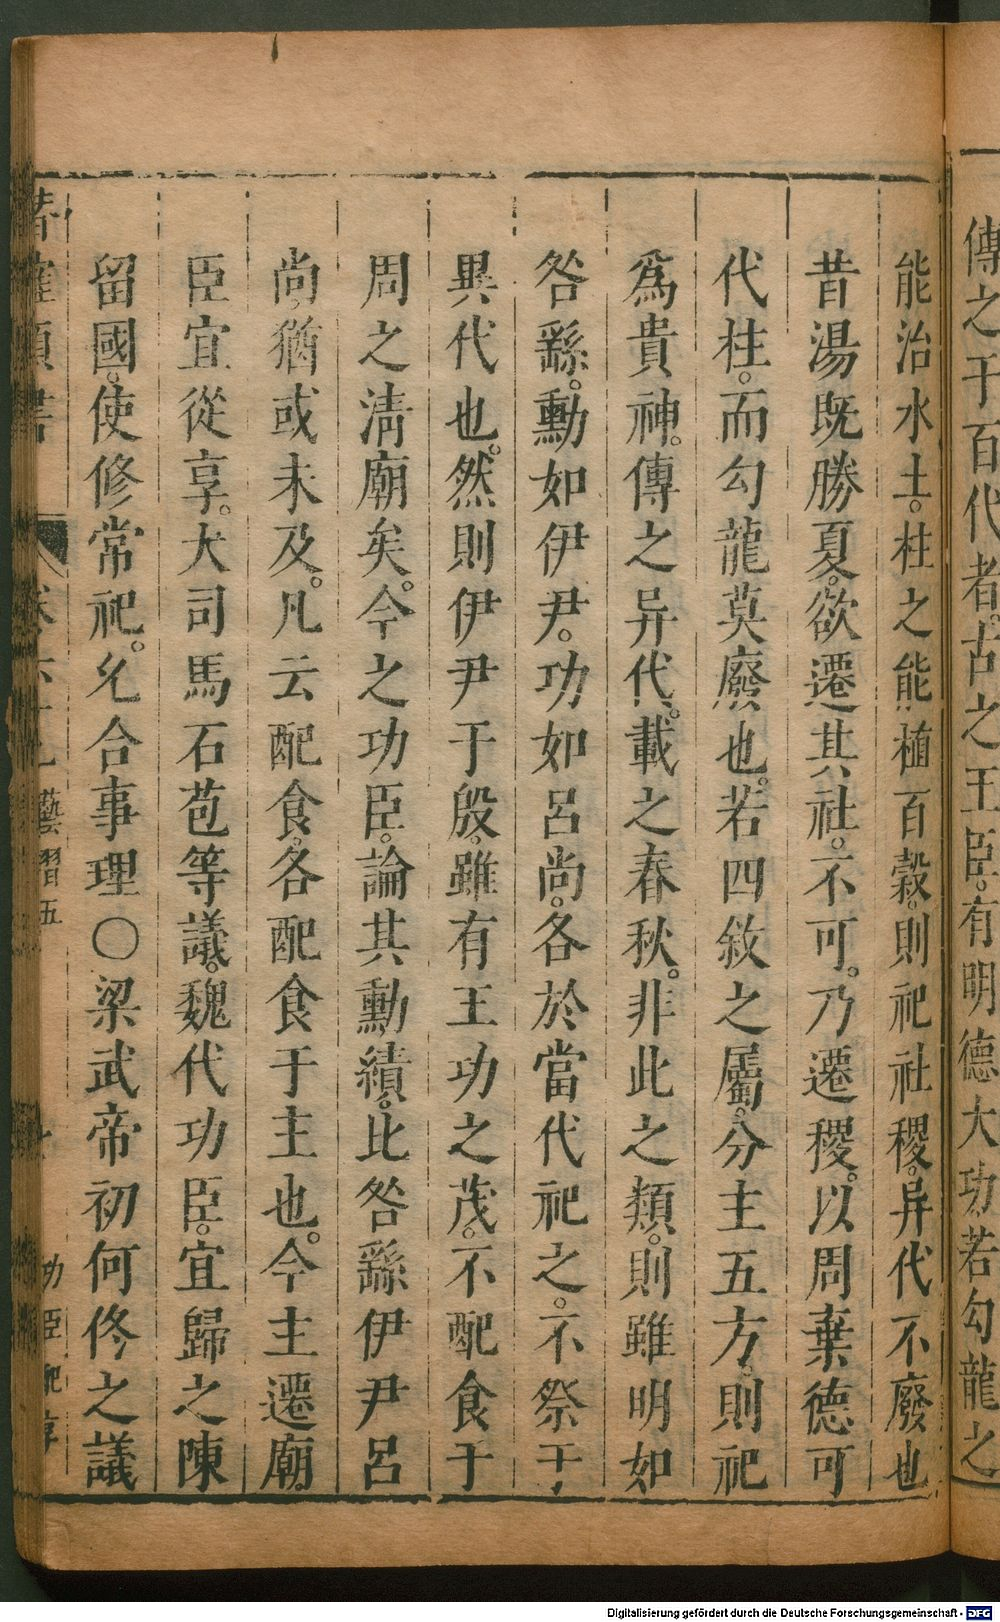 傳之于百代者。古之王臣。有明德大功。若勾龍之
能治水土。柱之能植百穀。則祀社稷。异代不廢也
昔湯既勝夏。欲遷其社。不可。乃遷稷。以周棄德可
代柱。而勾龍莫廢也。若四敘之屬。分主五方。則祀
爲貴神。傳之异代。載之春秋。非此之類。則雖明如
咎繇。勳如伊尹。功如呂尚。各於當代祀之。不祭于
異代也。然則伊尹于殷。雖有王功之茂。不配食于
周之淸廟矣。今之功臣。論其勳績。比咎繇伊尹呂
尚。猶或未及。凡云配食。各配食于主也。今主遷廟
臣宜從享。大司馬石苞等議。魏代功臣。宜歸之陳
留國。使修常祀。允合事理○梁武帝初何佟之議
藝習五
功臣配享
Digitalisierung gefördert durch die Deutsche Forschungsgemeinschaft - DFG